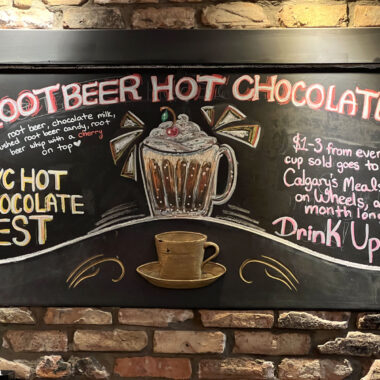 ROOTBEER HOT CHOCOLATE
root beer, chocolate milk,
crushed root beer candy, root
beer whip with a cherry
on top
YYC HOT
CHOCOLATE
FEST
$1-3 from every
cup sold goes to
Calgary's Meals
on Wheels, all
month long
Drink Up!